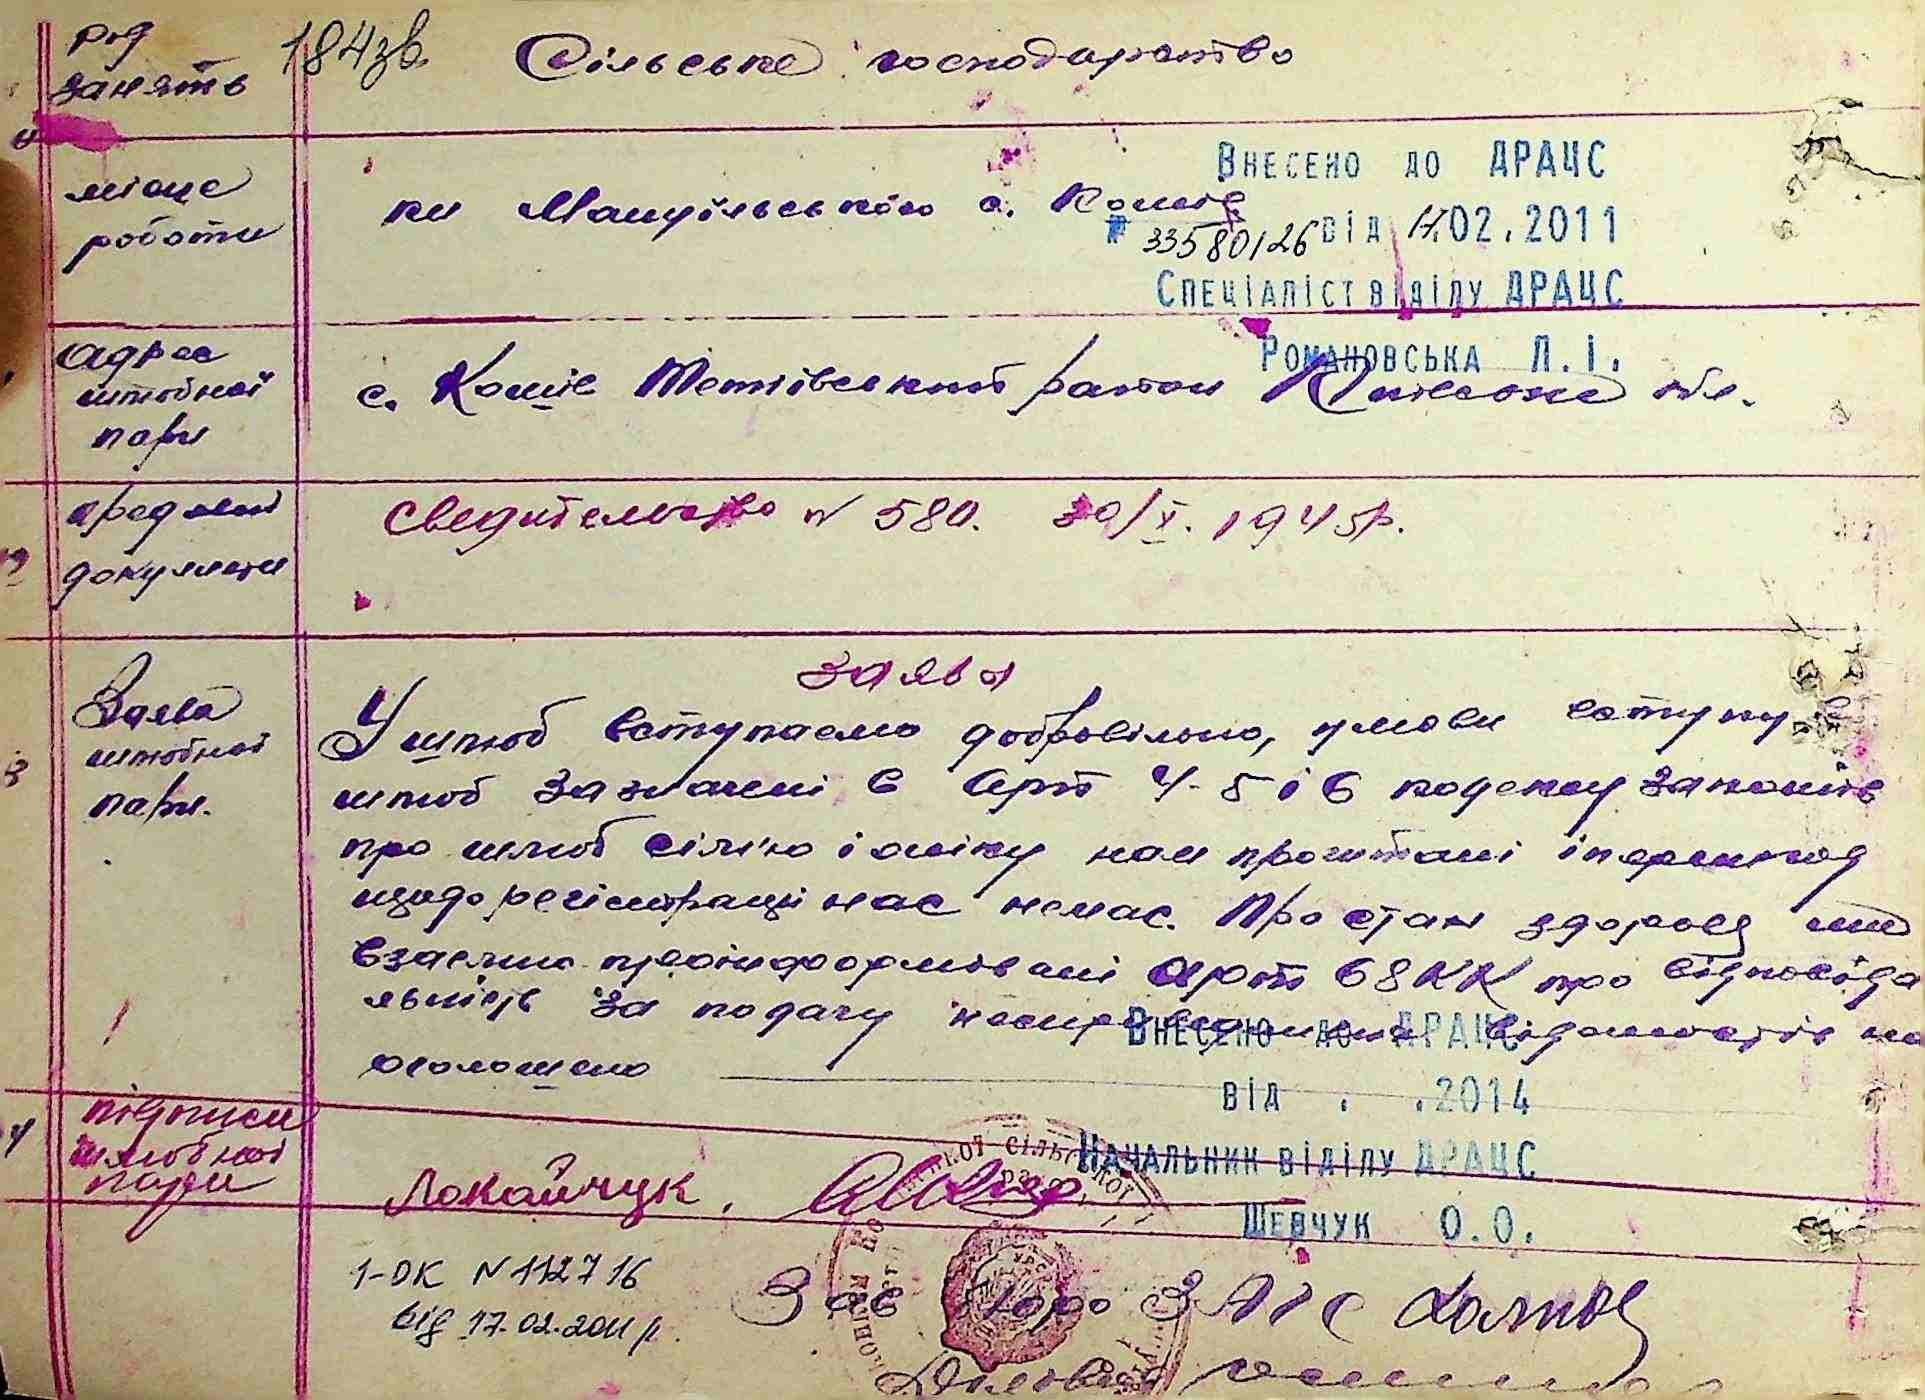 род занять
184зв. Сільське господарство
місце роботи
Внесено до ДРАЦС
км Мануїльського с. Кошів
№ 33580126 від 17.02.2011
Спеціаліст відділу ДРАЦС
Романовська Л.І.
адрес шлюбної пари
с. Кошів Тетіївський район Київської обл.
документи
Сведительство № 580. 30/X. 1945р.
заява
Заява шлюбної пари.
У шлюб вступаємо добровільно, умови вступу в
шлюб зазначені в арт 4-5 і 6 кодексу законів
про шлюб сім'ю і опіку нам прочитані і перешкод
щодо регістрації нас немає. Про стан здоровя ми
взаємно проінформовані арт 68 КК про відповіда
льність за подачу відомостів
оголошено
Внесено до ДРАЦС
від . .2014
Начальник відділу ДРАЦС
Шевчук О.О.
підписи шлюбної пари
Локайчук,
1-ОК N 112716
від 17.02.2011 р.
Зав бюро ЗАГС
Діловод